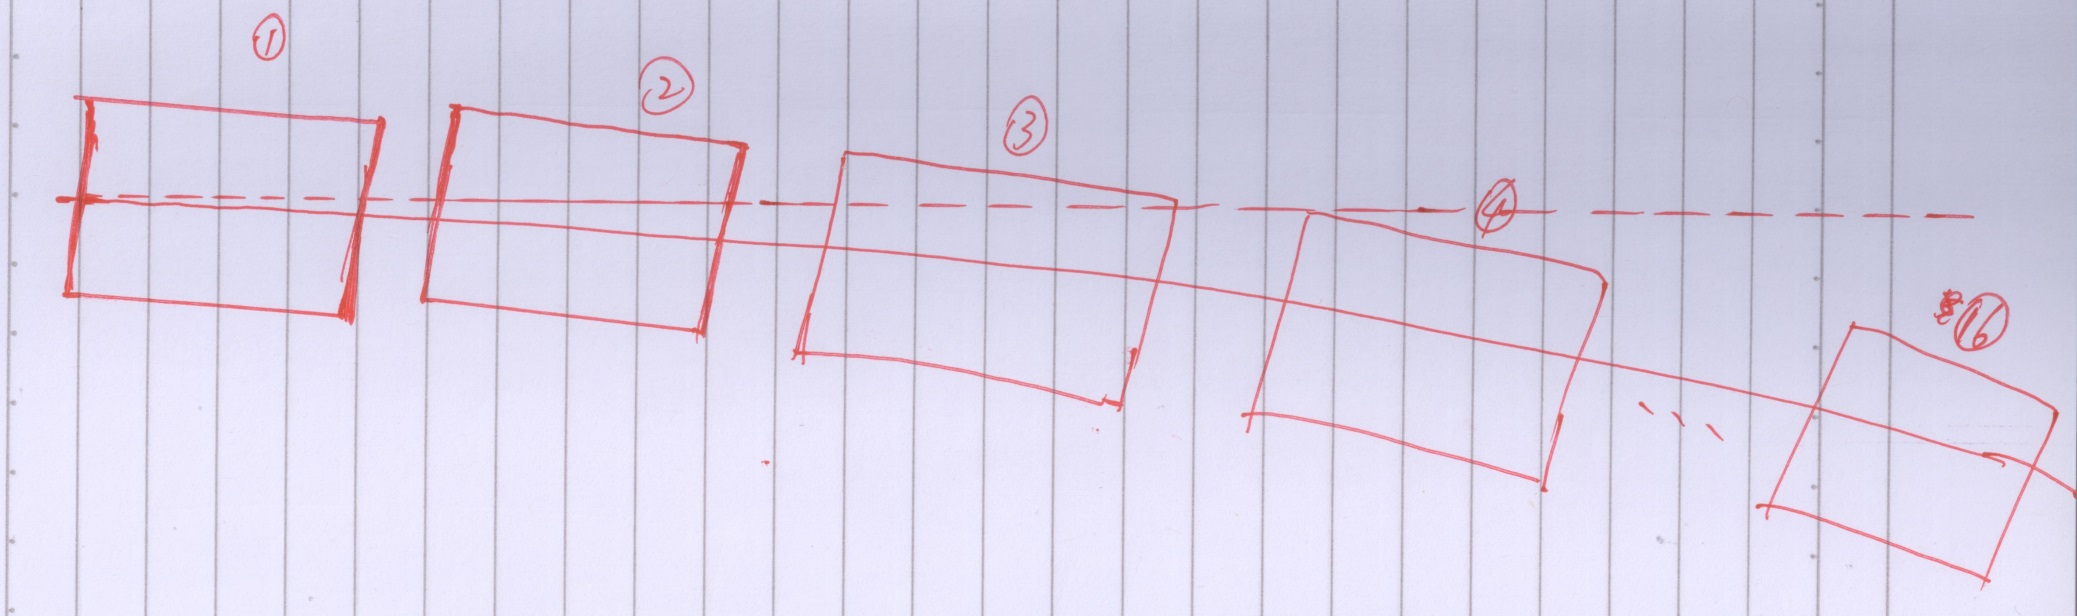 ①
②
③
④
⑯